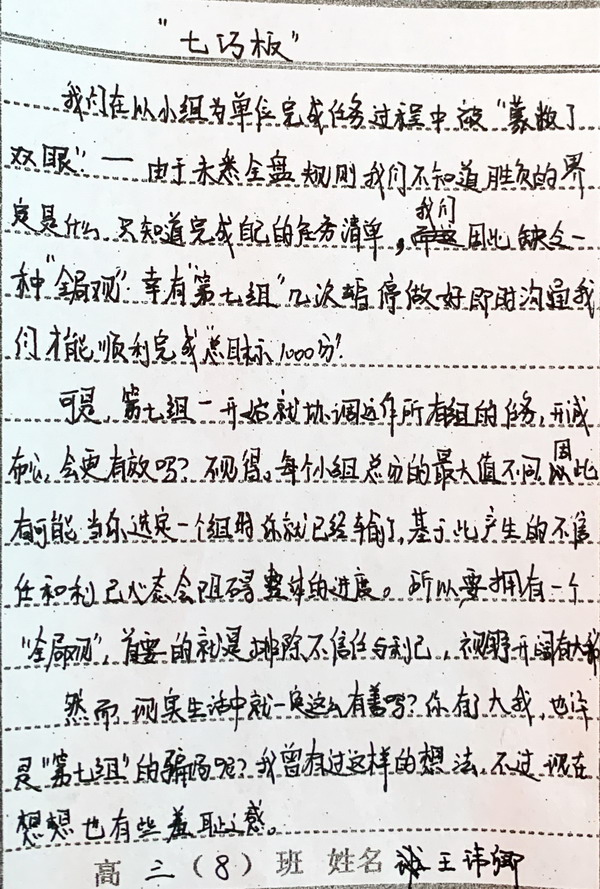 "七巧板"
我们在以小组为单位完成任务过程中被"蒙蔽了
双眼"——由于未悉全盘规则我们不知道胜负的界
定是什么,只知道完成自己的任务清单,我们因此缺乏一
种"全局观"。幸有"第七组"几次暂停做好即时沟通我
们才能顺利完成"总目标1000分"。
可是,第七组一开始就协调运作所有组的任务,开诚
布公,会更有效吗?不见得。每个小组总分的最大值不同,因此
有可能当你选定一个组时你就已经输了,基于此产生的不信
任和利己心态会阻碍整体的进度。所以要拥有一个
"全局观",首要的就是排除不信任与利己,视野开阔有大我
然而现实生活中就一定这么有善吗?你有了大我,也许
是"第七组"的骗局呢?我曾有过这样的想法,不过现在
想想也有些羞耻之感。
高三(8)班 姓名 王讳卿